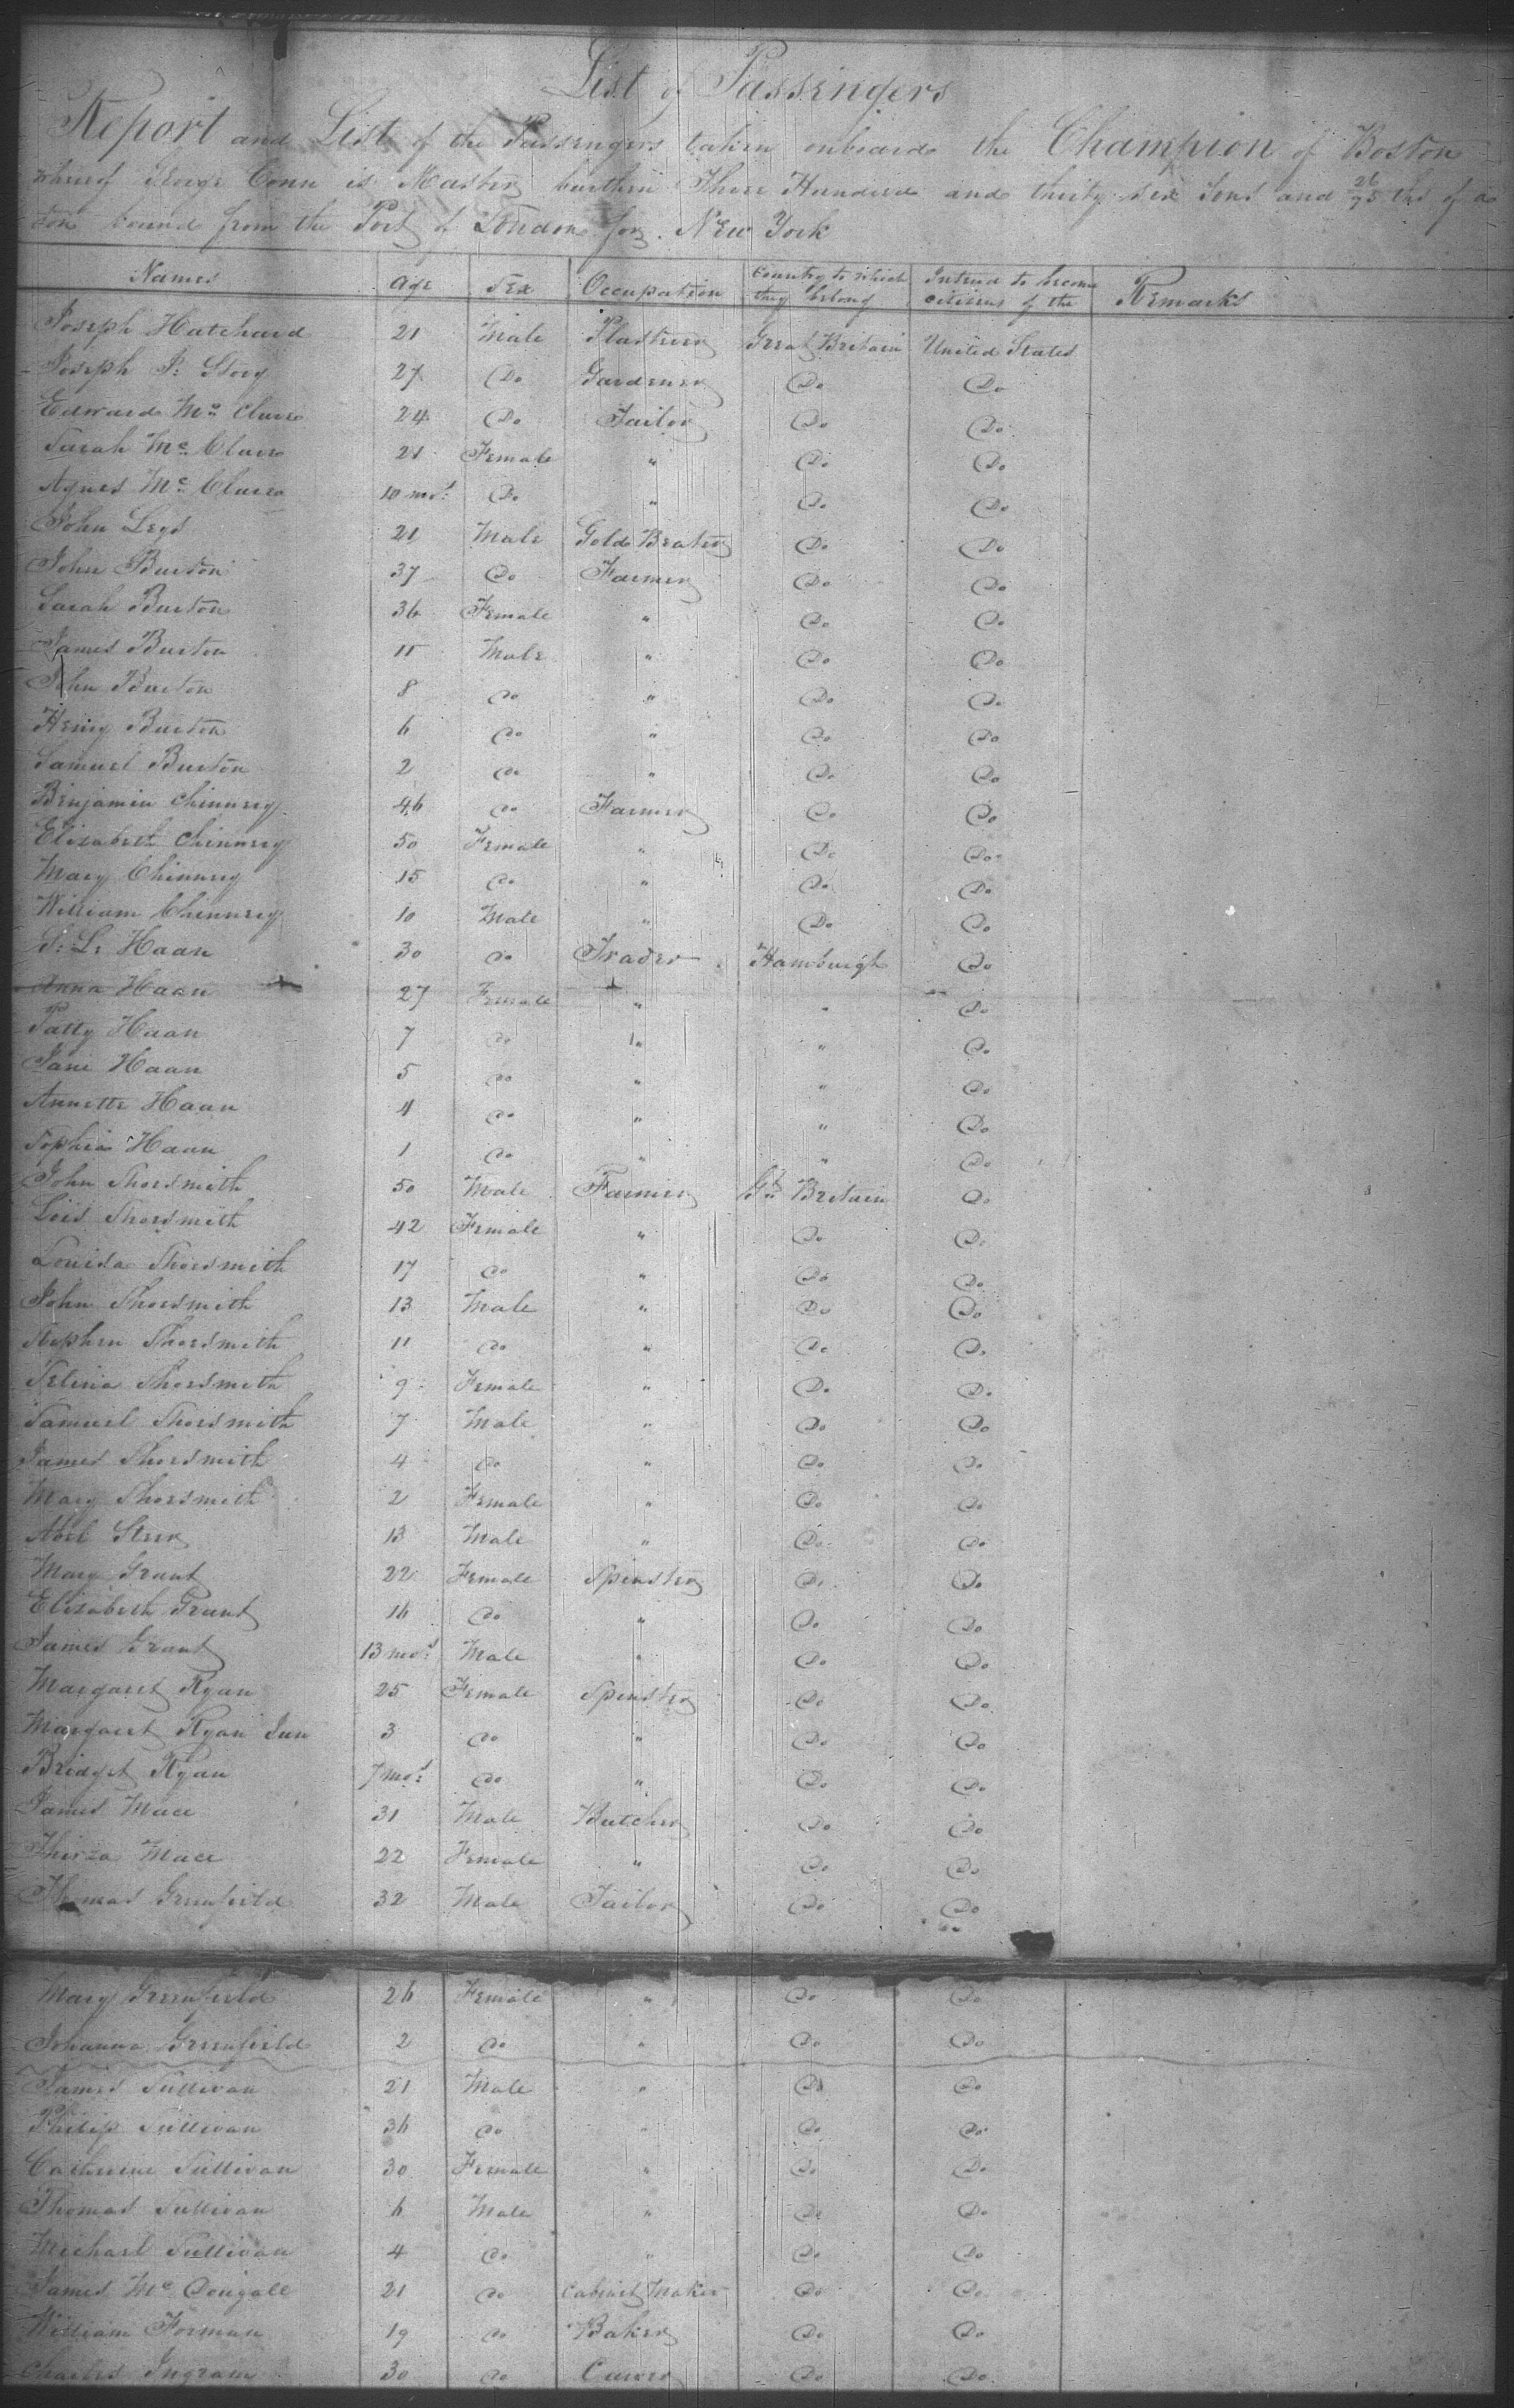 List of Passengers
Report and List of the Passengers taken onboard the Champion of Boston
whereof George Conn is Master burthen Three Hundred and thirty six tons and 26/95 ths of a
ton bound from the Port of London for New York
Names Age Sex Occupation Country to which they belong Intend to become citizens of the Remarks
Joseph Hatchard 21 Male Plasterer Great Britain United States
Joseph J: Story 27 Do Gardener Do Do
Edward Mc Clure 24 Do Tailor Do Do
Sarah Mc Clure 21 Female " Do Do
Agnes Mc Clure 10 mos: Do " Do Do
John Legs 21 Male Gold Beater Do Do
John Burton 37 Do Farmer Do Do
Sarah Burton 36 Female " Do Do
James Burton 11 Male " Do Do
John Burton 8 Do " Do Do
Henry Burton 6 Do " Do Do
Samuel Burton 2 Do " Do Do
Benjamin Chinnery 46 Do Farmer Do Do
Elizabeth Chinnery 50 Female " Do Do
Mary Chinnery 15 Do " Do Do
William Chinnery 10 Male " Do Do
S: L: Haan 30 Do Trader Hamburgh Do
Anna Haan 27 Female " " Do
Patty Haan 7 Do " " Do
Jane Haan 5 Do " " Do
Annette Haan 4 Do " " Do
Sophia Haan 1 Do " " Do
John Shoesmith 50 Male Farmer Gt Britain Do
Lois Shoesmith 42 Female " Do Do
Louisa Shoesmith 17 Do " Do Do
John Shoesmith 13 Male " Do Do
Stephen Shoesmith 11 Do " Do Do
Selina Shoesmith 9 Female " Do Do
Samuel Shoesmith 7 Male " Do Do
James Shoesmith 4 Do " Do Do
Mary Shoesmith 2 Female " Do Do
Abel Steer 13 Male " Do Do
Mary Grant 22 Female Spinster Do Do
Elizabeth Grant 16 Do " Do Do
James Grant 13 mos: Male " Do Do
Margaret Ryan 25 Female Spinster Do Do
Margaret Ryan Jun 3 Do " Do Do
Bridget Ryan 7 mos: Do " Do Do
James Mace 31 Male Butcher Do Do
Thirza Mace 22 Female " Do Do
Thomas Greenfield 32 Male Tailor Do Do
Mary Greenfield 26 Female " Do Do
Johanna Greenfield 2 Do " Do Do
James Sullivan 21 Male " Do Do
Philip Sullivan 36 Do " Do Do
Catherine Sullivan 30 Female " Do Do
Thomas Sullivan 6 Male " Do Do
Michael Sullivan 4 Do " Do Do
James Mc Dougall 21 Do Cabinet Maker Do Do
William Forman 19 Do Baker Do Do
Charles Ingram 30 Do Do Do